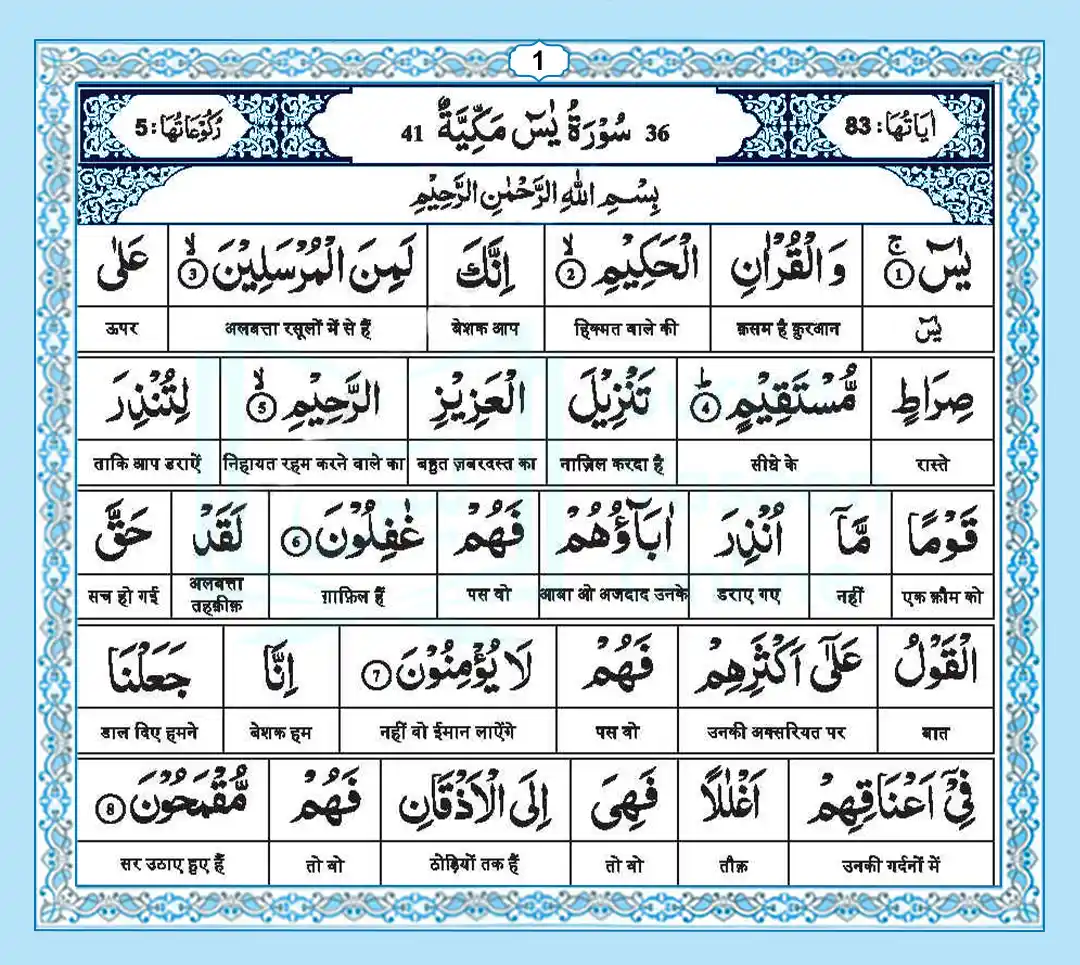 1
اٰيَاتُهَا: 83 36 سُوْرَةُ يٰسٓ مَكِّيَّةٌ 41 رُكُوْعَاتُهَا: 5
بِسْمِ اللّٰهِ الرَّحْمٰنِ الرَّحِيْمِ
يٰسٓ ۚ ﴿1﴾ وَالْقُرْاٰنِ الْحَكِيْمِ ۙ ﴿2﴾ اِنَّكَ لَمِنَ الْمُرْسَلِيْنَ ۙ ﴿3﴾ عَلٰى
يٰسٓ क़सम है क़ुरआन हिक्मत वाले की बेशक आप अलबत्ता रसूलों में से हैं ऊपर
صِرَاطٍ مُّسْتَقِيْمٍ ؕ ﴿4﴾ تَنْزِيْلَ الْعَزِيْزِ الرَّحِيْمِ ۙ ﴿5﴾ لِتُنْذِرَ
रास्ते सीधे के नाज़िल करदा है बहुत ज़बरदस्त का निहायत रहम करने वाले का ताकि आप डराऐं
قَوْمًا مَّاۤ اُنْذِرَ اٰبَآؤُهُمْ فَهُمْ غٰفِلُوْنَ ﴿6﴾ لَقَدْ حَقَّ
एक क़ौम को नहीं डराए गए आबा ओ अजदाद उनके पस वो ग़ाफ़िल हैं अलबत्ता तहक़ीक़ सच हो गई
الْقَوْلُ عَلٰٓى اَكْثَرِهِمْ فَهُمْ لَا يُؤْمِنُوْنَ ﴿7﴾ اِنَّا جَعَلْنَا
बात उनकी अक्सरियत पर पस वो नहीं वो ईमान लाऐंगे बेशक हम डाल दिए हमने
فِيْۤ اَعْنَاقِهِمْ اَغْلٰلًا فَهِيَ اِلَى الْاَذْقَانِ فَهُمْ مُّقْمَحُوْنَ ﴿8﴾
उनकी गर्दनों में तौक़ तो वो ठोड़ियों तक हैं तो वो सर उठाए हुए हैं